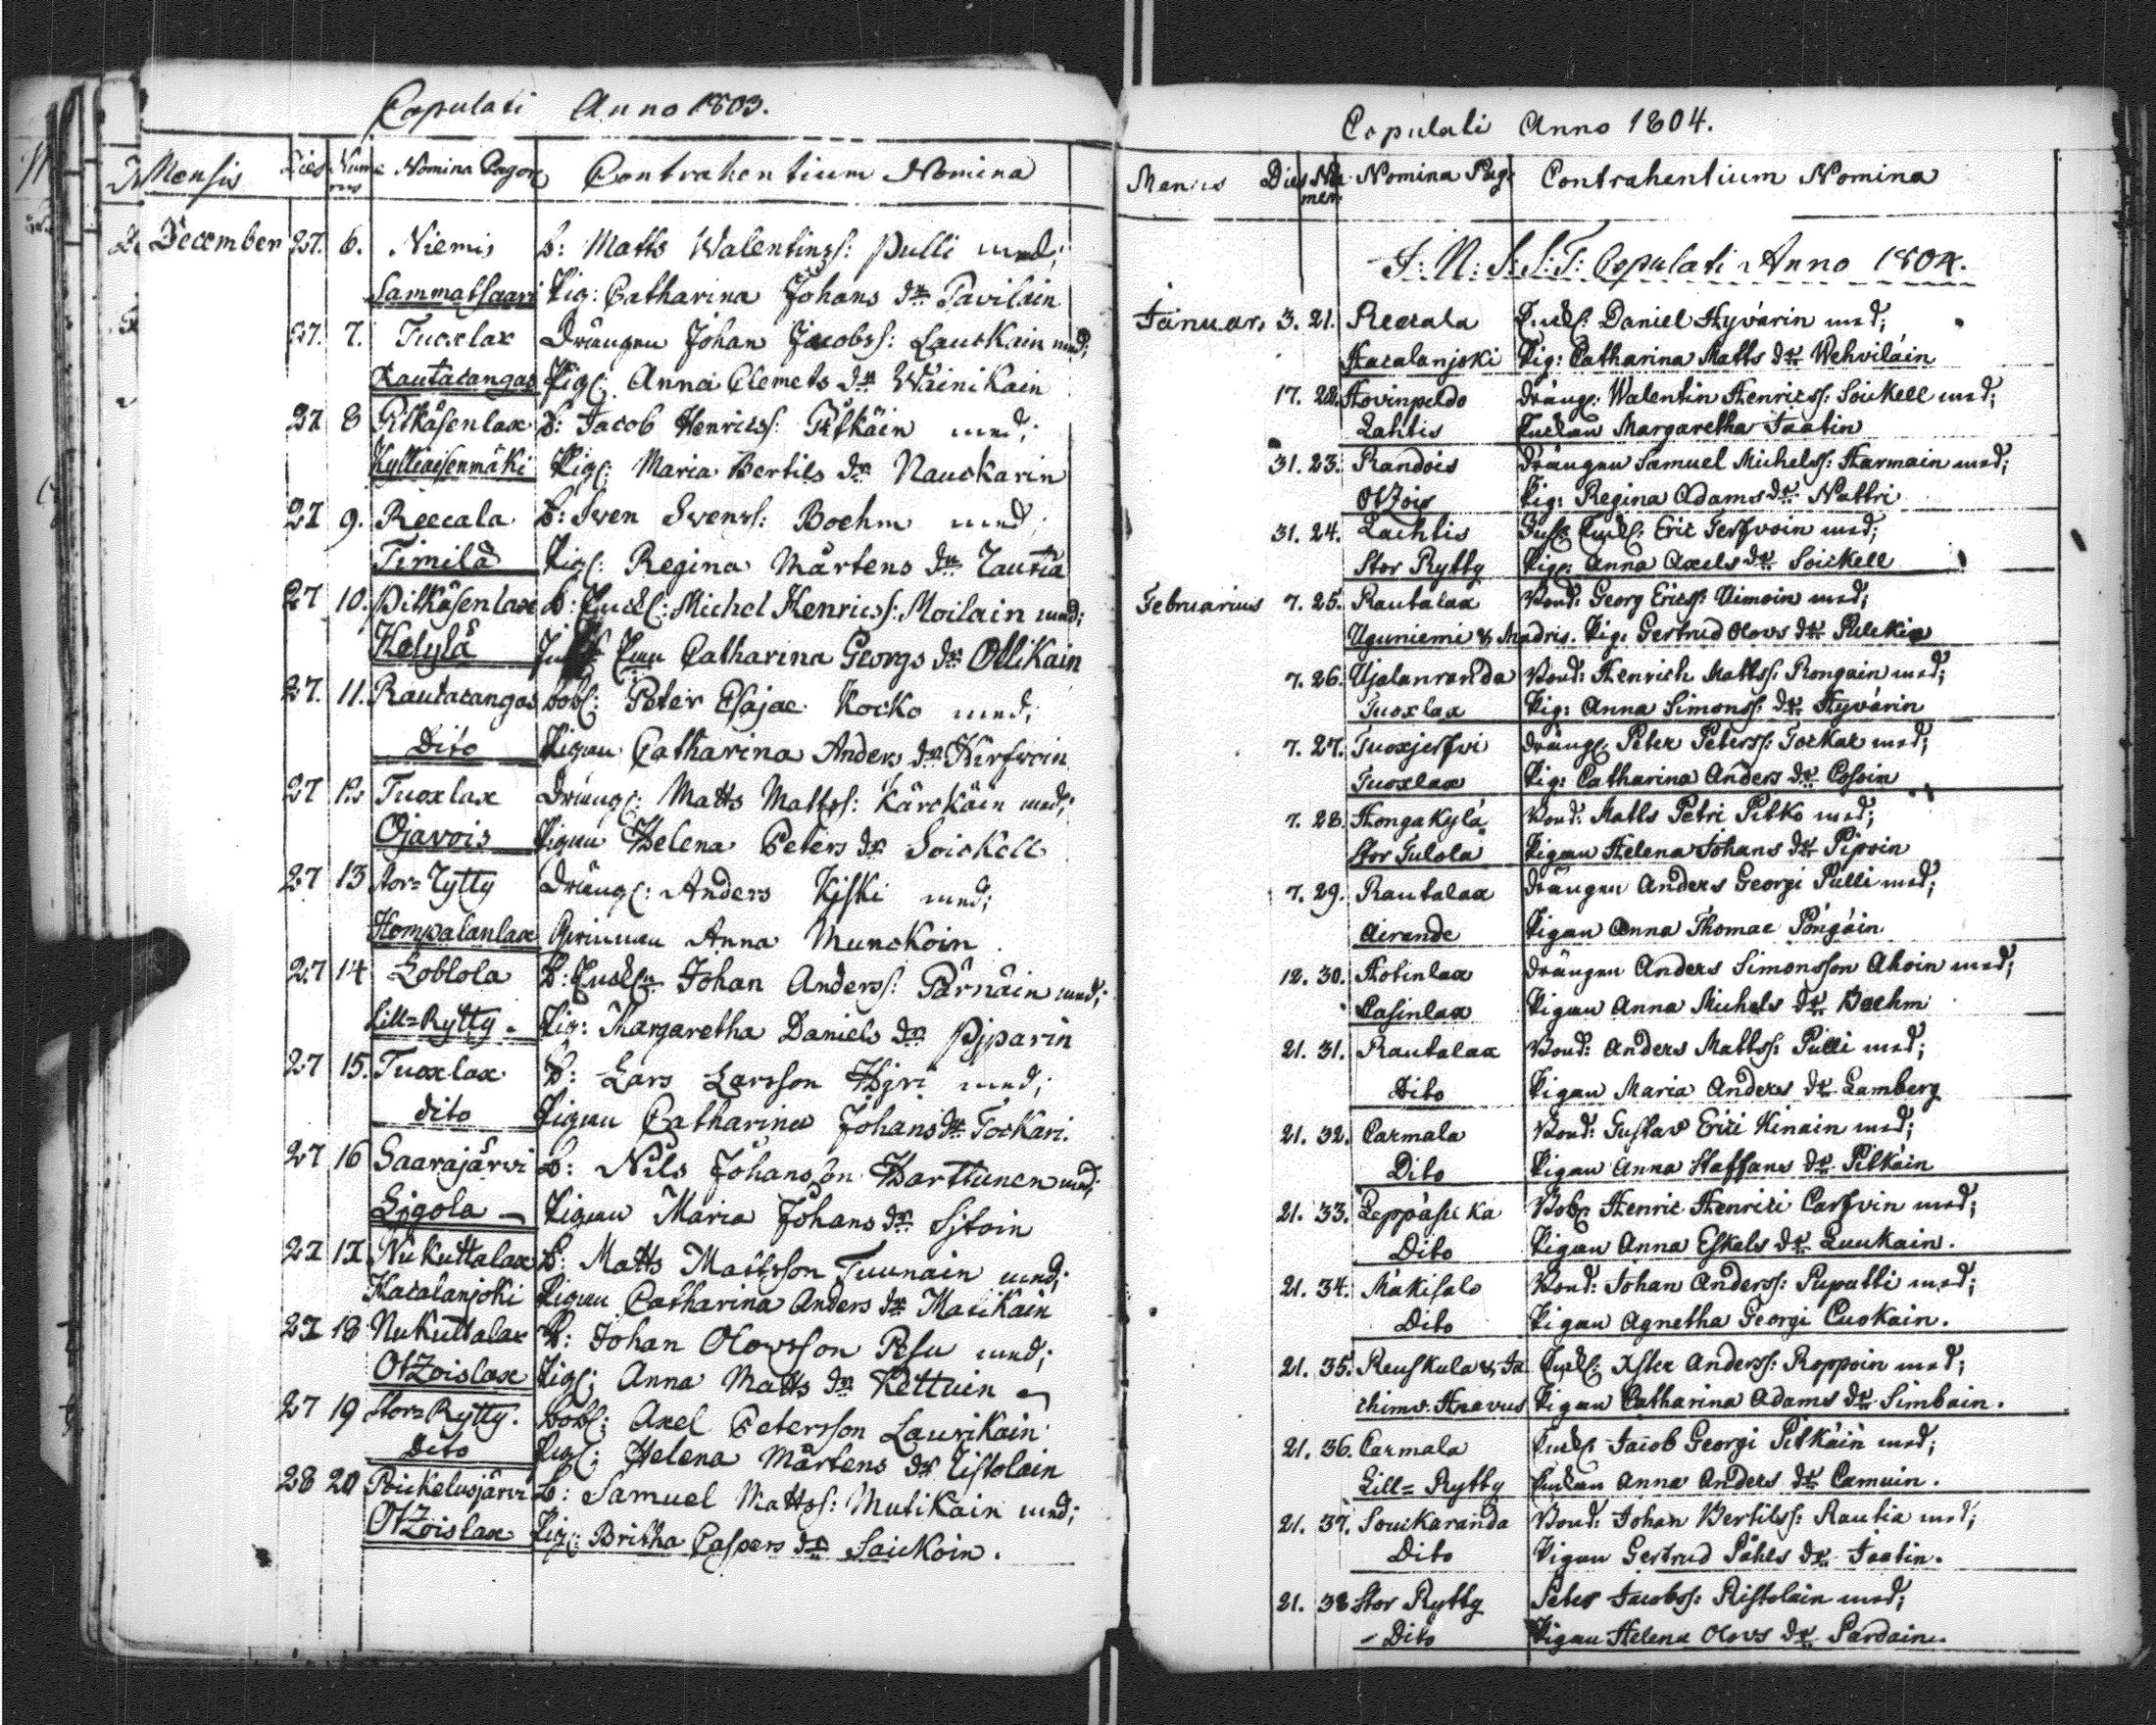 Copulati Anno 1803.
Mensis Dies Nume rus Nomina Pagor. Contrahentium Nomina
December 27. 6. Niemis B: Matts Walentinss: Pulli med;
Sammatsaari Pig: Catharina Johans dr Pavilain
27. 7. Tuoxlax Drängen Johan Jacobss: Lauckain med;
Rautacangas Pig: Anna Clemets dr Wäinikain
27 8 Pitkäsenlax B: Jacob Henricss: Pitkäin med;
Kylliäisenmäki Pig: Maria Bertils dr Nauckarin
27 9. Reecala B: Swen Swenss: Boehm med;
Timila Pig: Regina Mårtens dr Rautia
27 10. Pitkäsenlax B: Enckl: Michel Henricss: Moilain med;
Kesylä Enkan Catharina Georgs dr Ollikain
27. 11. Rautacangas bobl: Peter Esajae Kocko med;
Dito Pigan Catharina Anders dr Hirfwoin
27 12 Tuoxlax Dräng: Matts Mattss: Kärckäin med;
Ojavois Pigan Helena Peters dr Soickell
27 13 stor=Rytty Dräng: Anders Kiski med;
Homwalanlax Qwinnan Anna Munckoin
27 14 Loblola B: Enckl: Johan Anderss: Pärnäin med;
Lill=Rytty. Pig: Margaretha Daniels dr Pipparin
27 15. Tuoxlax B: Lars Larsson Hijri med;
dito Pigan Catharina Johans dr Tockari.
27 16 Saarajärvi B: Nils Johansson Karttunen med;
Ligola Pigan Maria Johans dr Sitoin
27 17 Nukuttalax B: Matts Mattsson Tuunain med;
Kacalanjoki Pigan Catharina Anders dr Matikain
27 18 Nukuttalax B: Johan Olowsson Pesu med;
Otzoislax Pig: Anna Matts dr Kettuin
27 19 Stor=Rytty. bobl: Axel Petersson Laurikain
Dito Pig: Helena Mårtens dr Ristolain
28 20 Poickelusjärvi B: Samuel Mattss: Mutikain med;
Otzoislax Pig: Britha Caspers dr Saickoin.
Copulati Anno 1804.
Mensis Dies Nu mer. Nomina Pag: Contrahentium Nomina
I: N: S: S: T: Copulati Anno 1804.
Januar. 3. 21. Recala Enckl: Daniel Hyvärin med;
Hacalanjoki Pig: Catharina Matts dr Wehviläin
17. 22. Hovinpeldo Dräng: Walentin Henricss: Soickell med;
Lahtis Enckan Margaretha Taatin
31. 23. Randois Drängen Samuel Michelss: Harmain med;
Otzois Pig: Regina Adams dr Nattri
31. 24. Lachtis Enckl: Eric Terfvoin med;
Stor Rytty Pig: Anna Axels dr Soickell
Februarius 7. 25. Rautalax Bond: Georg Ericss: Uimoin med;
Uguniemi & Madris. Pig: Gertrud Olovs dr Pulckia
7. 26. Ujalanranda Bond: Henrich Mattss: Rongain med;
Tuoxlax Pig: Anna Simonss: dr Hyvärin
7. 27. Tuoxjerfvi Dräng: Peter Peterss: Tockar med;
Tuoxlax Pig: Catharina Anders dr Cosoin
7. 28. Hongakylä Bond: Matts Petri Pitko med;
Stor Julola Pigan Helena Johans dr Piposin
7. 29. Rautalax Drängen Anders Georgi Pulli med;
Airande Pigan Anna Thomae Pöngäin
12. 30. Hotinlax Drängen Anders Simonsson Ahoin med;
Casinlax Pigan Anna Michels dr Boehm
21. 31. Rautalax Bond: Anders Mattss: Pulli med;
Dito Pigan Maria Anders dr Lamberg
21. 32. Carmala Bond: Gustav Erici Kinain med;
Dito Pigan Anna Staffans dr Pitkäin
21. 33. Leppäselkä Bob: Henric Henrici Carfvin med;
Dito Pigan Anna Eskels dr Luukain.
21. 34. Mäkisalo Bond: Johan Anderss: Puputti med;
Dito Pigan Agnetha Georgi Cuokain.
21. 35. Reuskula & Ja Enckl: Ister Anderss: Roppoin med;
chimv. Haavus Pigan Catharina Adams dr Simbain.
21. 36. Carmala Enckl: Jacob Georgi Pitkäin med;
Lill=Rytty Enckan Anna Anders dr Camuin.
21. 37. Souckaranda Bond: Johan Bertilss: Rautia med;
Dito Pigan Gertrud Påhls dr Taatin.
21. 38 Stor Rytty Peter Jacobss: Ristolain med;
Dito Pigan Helena Olovs dr Pardain.